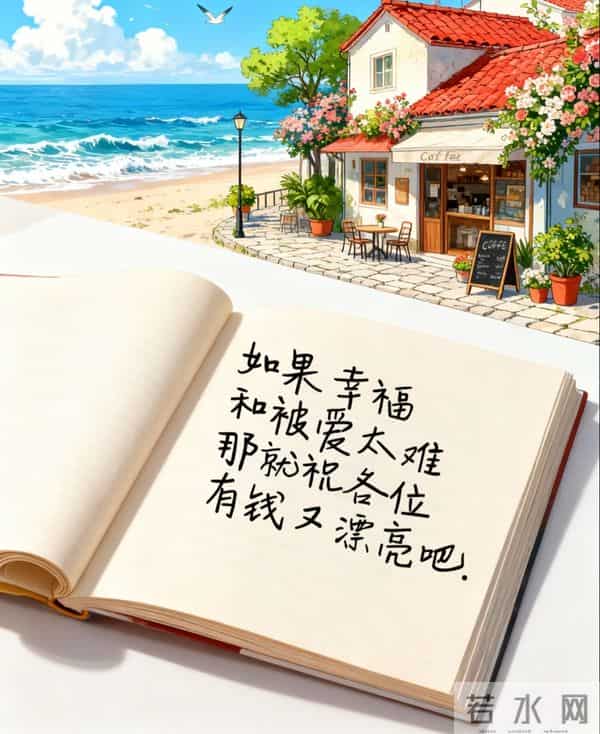 Coffee
COFFE
如果幸福
和被爱太难
那就祝各位
有钱又漂亮吧.
若水网